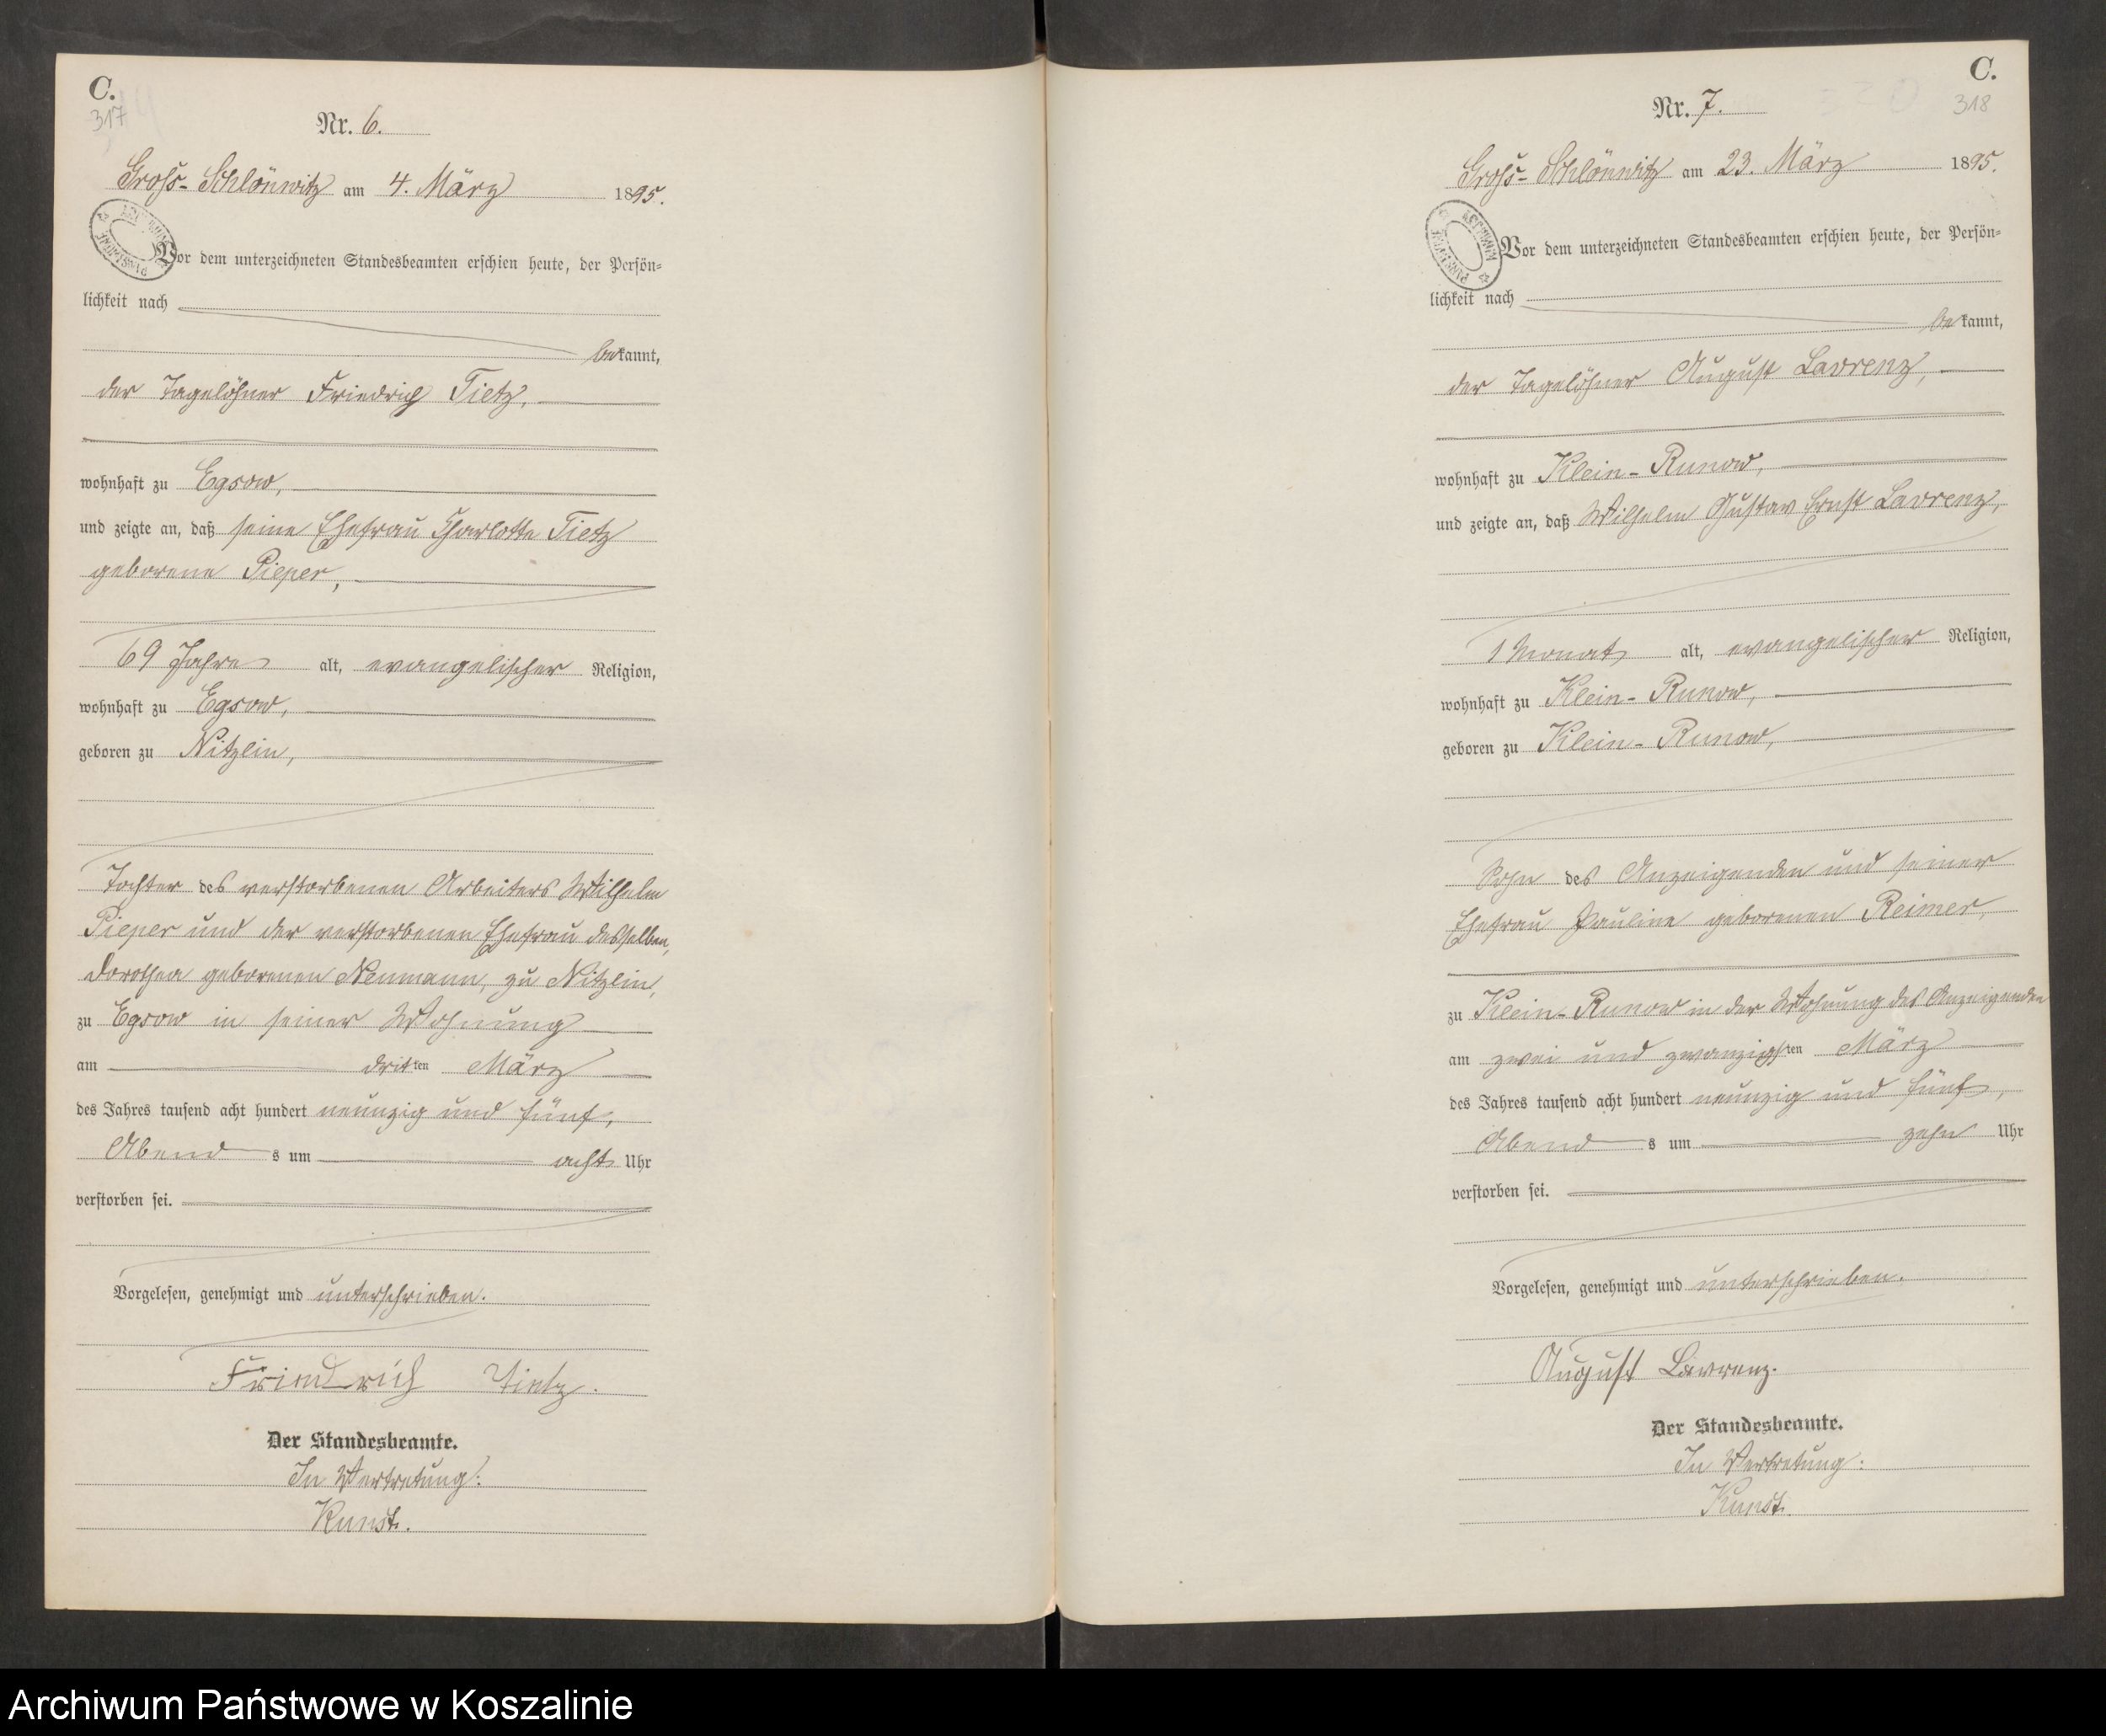 C.
317
Nr. 6.
Gross-Schlönwitz am 4. März 1895.
Vor dem unterzeichneten Standesbeamten erschien heute, der Persön=
lichkeit nach
bekannt,
der Tagelöhner Friedrich Tietz,
wohnhaft zu Egsow,
und zeigte an, daß seine Ehefrau Charlotte Tietz
geborene Pieper,
69 Jahre alt, evangelischer Religion,
wohnhaft zu Egsow,
geboren zu Nitzlin,
Tochter des verstorbenen Arbeiters Wilhelm
Pieper und der verstorbenen Ehefrau desselben,
Dorothea geborenen Neumann, zu Nitzlin,
zu Egsow in seiner Wohnung
am dritten März
des Jahres tausend acht hundert neunzig und fünf,
Abends um acht Uhr
verstorben sei.
Vorgelesen, genehmigt und unterschrieben.
Friedrich Tietz.
Der Standesbeamte.
In Vertretung:
Kunst.
C.
318
Nr. 7.
Gross-Schlönwitz am 23. März 1895.
Vor dem unterzeichneten Standesbeamten erschien heute, der Persön=
lichkeit nach
bekannt,
der Tagelöhner August Lavrenz,
wohnhaft zu Klein-Runow,
und zeigte an, daß Wilhelm Gustav Ernst Lavrenz,
1 Monat alt, evangelischer Religion,
wohnhaft zu Klein-Runow,
geboren zu Klein-Runow,
Sohn des Anzeigenden und seiner
Ehefrau Pauline geborenen Reimer,
zu Klein-Runow in der Wohnung des Anzeigenden
am zwei und zwanzigsten März
des Jahres tausend acht hundert neunzig und fünf,
Abends um zehn Uhr
verstorben sei.
Vorgelesen, genehmigt und unterschrieben.
August Lavrenz.
Der Standesbeamte.
In Vertretung:
Kunst.
Archiwum Państwowe w Koszalinie